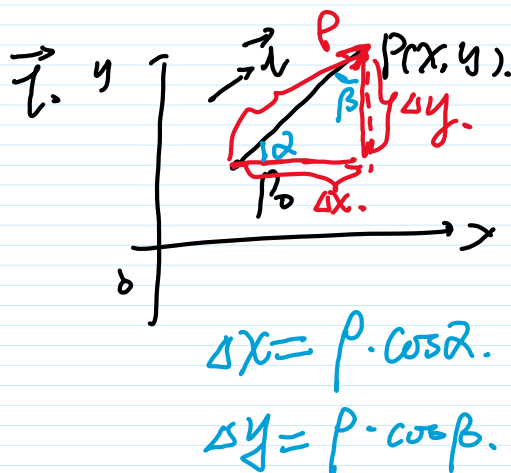 ρ
l⃗. y l⃗ P(x, y).
β Δy.
α
P₀ Δx.
x
o
Δx = ρ·cosα.
Δy = ρ·cosβ.